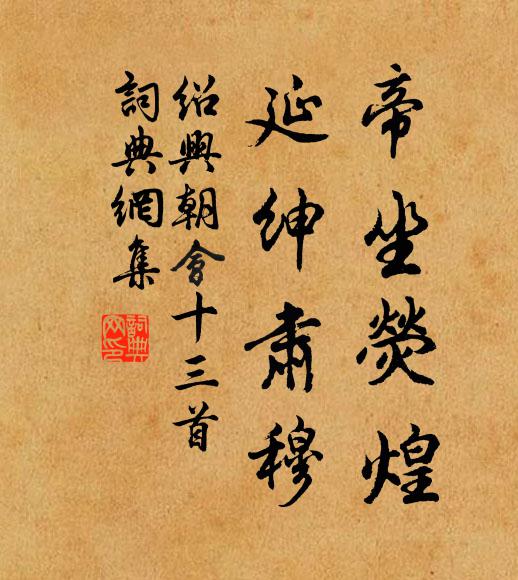 帝坐熒煌
延紳肅穆
紹興朝會十三首
詞典網集
詞典網印